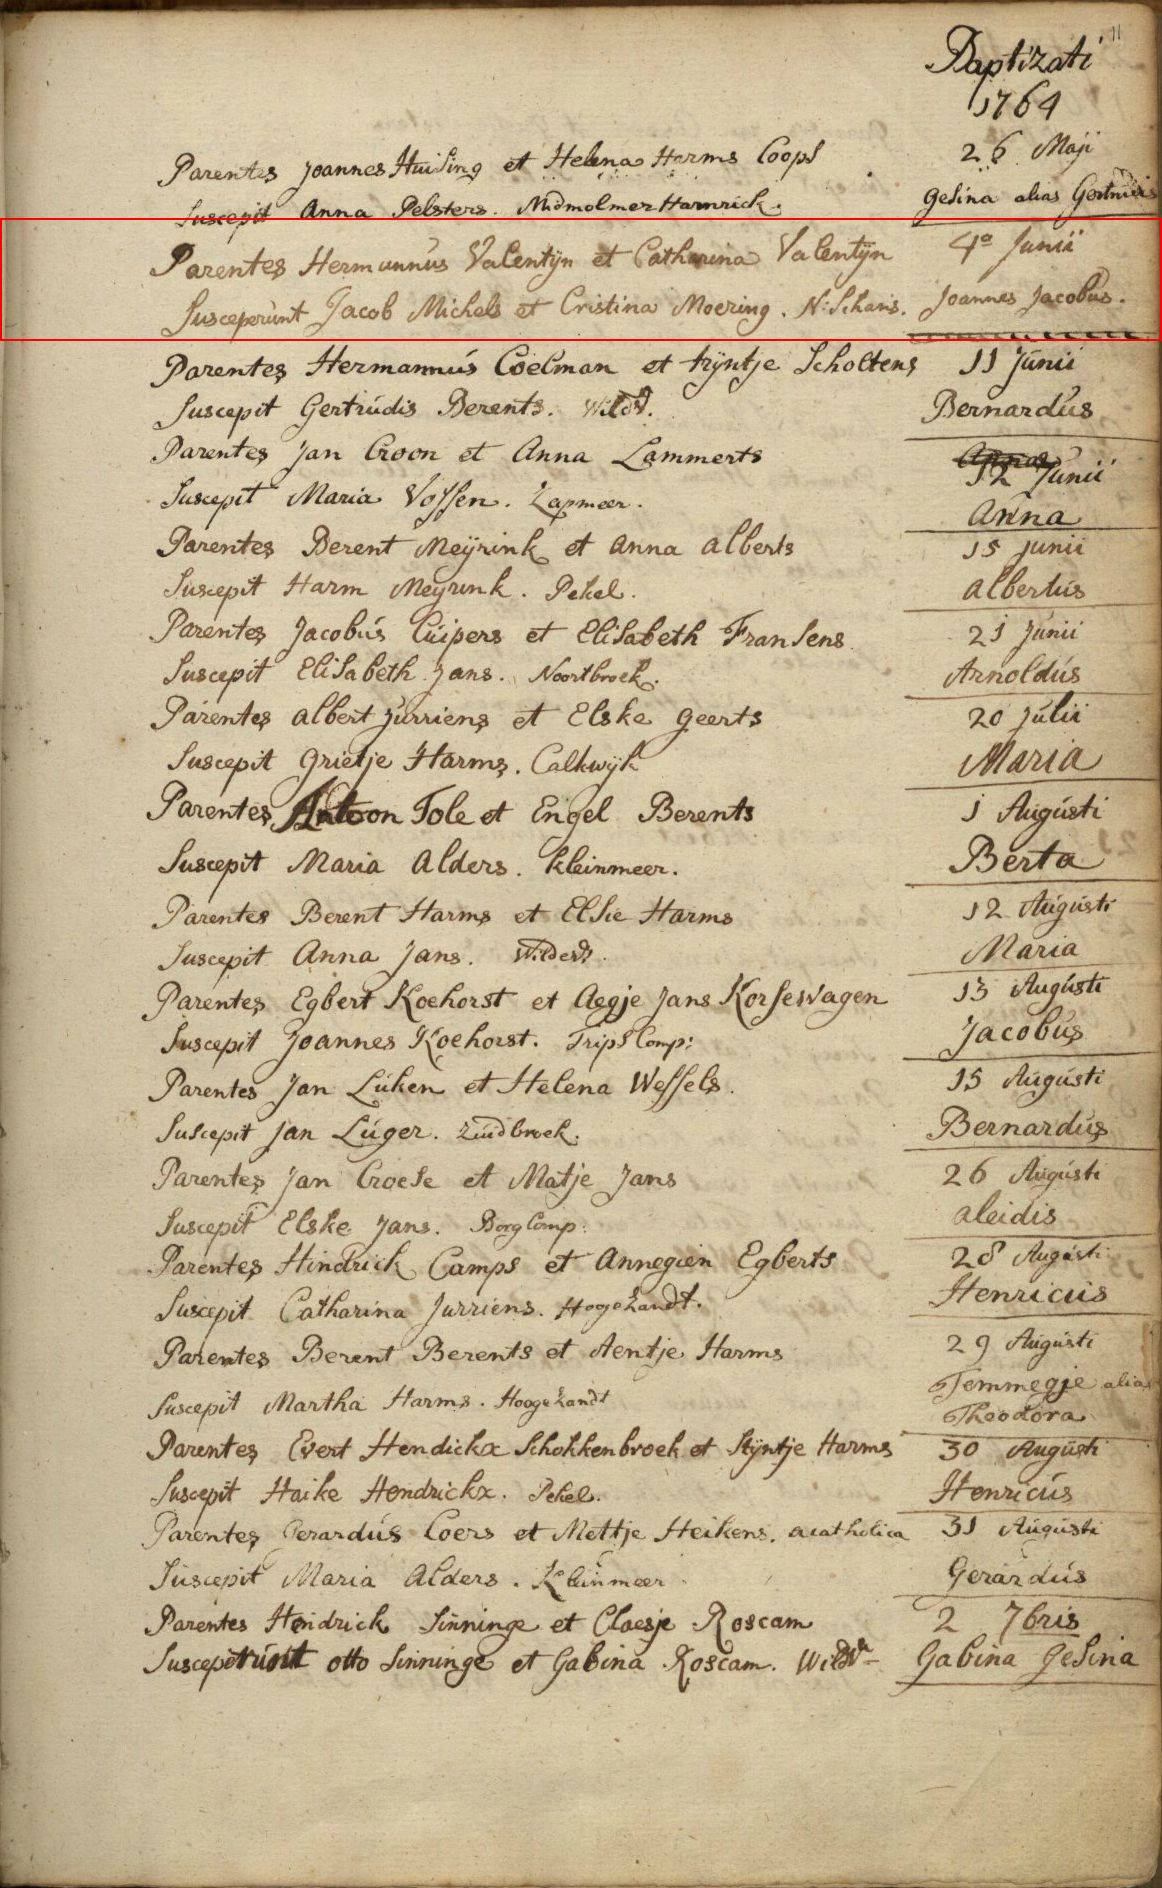 11
Baptizati
1764
Parentes Joannes Huising et Helena Harms Coops 26 Maji
Suscepit Anna Pelsters. Midmolmer Hamrick. Gesina alias Gertrudis
Parentes Hermannus Valentÿn et Catharina Valentÿn 4º Junii
Susceperunt Jacob Michels et Cristina Moering. N: Schans. Joannes Jacobus.
Parentes Hermannús Coelman et trÿntje Scholtens 11 Junii
Suscepit Gertrúdis Berents. Wild. Bernardús
Parentes Jan Croon et Anna Lammerts 12 Junii
Suscepit Maria Vossen. Zapmeer. Anna
Parentes Berent Meÿrink et Anna alberts 15 Junii
Suscepit Harm Meyrink. Pekel. albertús
Parentes Jacobús Cúipers et Elisabeth Fransens 21 Junii
Suscepit Elisabeth Jans. Noortbroek. Arnoldús
Parentes albert Jurriens et Elske geerts 20 Julii
Suscepit grietje Harms. Calkwÿk Maria
Parentes Antoon Tole et Engel Berents 1 Augústi
Suscepit Maria Alders. kleinmeer. Berta
Parentes Berent Harms et Elsie Harms 12 Augústi
Suscepit Anna Jans. Maria
Parentes Egbert Koehorst et Aegje Jans Korsewagen 13 Augústi
Suscepit Joannes Koehorst. Trips Comp: Jacobús
Parentes Jan Lúken et Helena Wessels. 15 Augústi
Suscepit Jan Lúger. Zúidbroek. Bernardús
Parentes Jan Croese et Matje Jans 26 Augústi
Suscepit Elske Jans. Borg Comp: aleidis
Parentes Hindrick Camps et Annegien Egberts 28 Augústi
Suscepit Catharina Jurriens. Hoogezandt. Henricús
Parentes Berent Berents et Aentje Harms 29 Augústi
Suscepit Martha Harms. Hoogezandt Temmegje alias
Theodora
Parentes Evert Hendickx Schokkenbroek et Stÿntje Harms 30 Augústi
Suscepit Haike Hendrickx. Pekel. Henricús
Parentes Gerardús Coers et Mettje Heikens. acatholica 31 Augústi
Suscepit Maria Alders. Kleinmeer Gerardús
Parentes Hendrick Sinninge et Claesje Roscam 2 7bris
Susceperúnt otto Sinninge et Gabina Roscam. Gabina Gesina